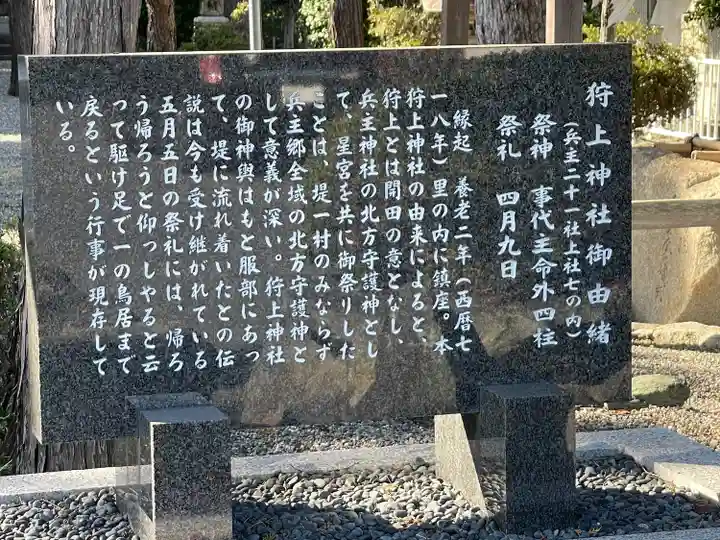 狩上神社御由緒
（兵主二十一社上社七の内）
祭神　事代主命外四柱
祭礼　四月九日
縁起　養老二年（西暦七
一八年）里の内に鎮座。本
狩上神社の由来によると、
狩上とは開田の意となし、
兵主神社の北方守護神とし
て、星宮を共に御祭りした
ことは、堤一村のみならず
兵主郷全域の北方守護神と
して意義が深い。狩上神社
の御神輿はもと服部にあっ
て、堤に流れ着いたとの伝
説は今も受け継がれている
五月五日の祭礼には、帰ろ
う帰ろうと仰っしゃると云
って駆け足で一の鳥居まで
戻るという行事が現存して
いる。